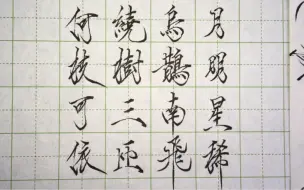 月明星稀
烏鵲南飛
繞樹三匝
何枝可依